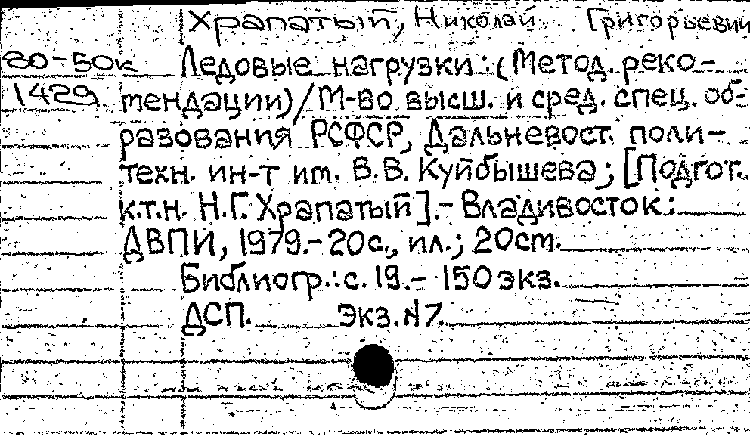 Храпатый, Николай Григорьевич
80-50к Ледовые нагрузки: (Метод. реко-
1429 мендации) / М-во высш. и сред. спец. об-
разования РСФСР, Дальневост. поли-
техн. ин-т им. В.В. Куйбышева; [Подгот.
к.т.н. Н.Г. Храпатый].- Владивосток:
ДВПИ, 1979.- 20с., ил.; 20см.
Библиогр.: с. 19.- 150 экз.
ДСП. Экз.N7.